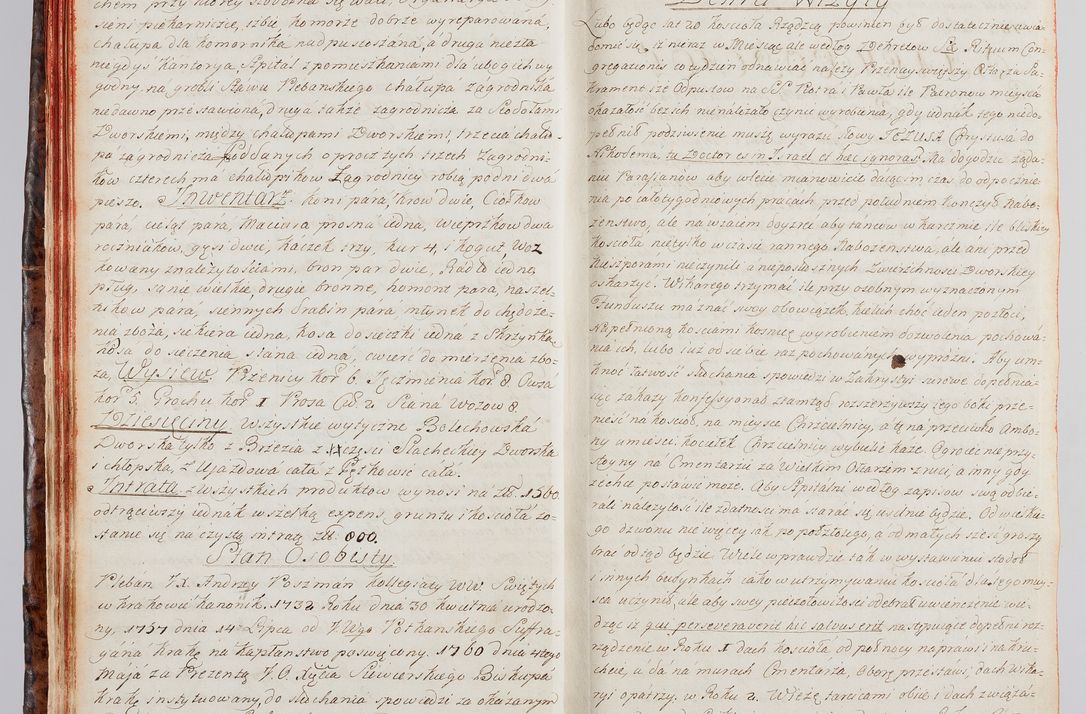 chem przy ktorey stodołka się wali, Organaryą z
sieni piekarnicze, izbie, komorze dobrze wyreparowána,
chałupa dla komorniká nadpustoszána, á druga niezta
niegdyś kantorya, Szpital z pomieszkaniami dla ubogich wy
godny, na grobli Stáwu Plebanskiego chałupa zagrodnika
niedawno prze stawiona, druga także zagrodnicza za Stodołami
Dworskiemi, między chałupami Dworskiemi, trzecia chału-
pa zagrodnicza. Poddanych oprocz tych trzech zagrodni-
ków czterech má chałupników Zagrodnicy robią po dni dwá
piesze. Inwentarz. koni pára, krow dwie, Ciołkow
pára, cieląt pára, Maciora prosna iedna, wieprzkow dwa
roczniaków, gęsi dwie, kaczek trzy, kur 4, i kogut, Woz
kowany z należytościámi, bron par dwie, Radło iedne,
pług, sanie wielkie, drugie bronne, homont para, naszel-
ników pará, siennych drabin pára młynek do chędoże-
nia zboża, siekiera iedna, kosa do sieczki iedná z Skrzynką,
kosa do sieczenia siana iedna, cwierć do mierzenia zbo-
za, Wysiew. Pszenicy kor. 6. Jęczmienia kor. 8. Owsá
kor. 5. Grochu kor. 1 Prosa Cw. 2. Siáná Wozow 8.
Dziesięciny. Wszystkie wytyczne Bolechowská
Dworska tylko z Brzezia z części Slacheckiey Dworska
i chłopska, z Ujazdowa cała z Pękowic całá.
Intrata z wszystkich produktow wynosi ná zł. 1560
odtrąciwszy iednak wszelką expens, gruntu i kosciołá zo-
stanie się ná czystą intratę zł. 800.
Stan Osobisty.
Pleban J.X. Andrzey Poszman kollegiaty WW. Swiętych
w krakowie kanonik. 1732. Roku dniá 30 kwietnia urodzo
ny, 1757 dnia 14 Lipca od J.W.go Potkanskiego Suffra-
ganá krakow. na kapłanstwo poswięcony. 1760 dnia
Maja za Prezentą J.O. Xcia Siewierskiego Biskupa
krakow. instytuowany, do słuchania spowiedzi za okazanym
Dekret Wizyty
Lubo będąc lat 20 kosciołá Rządzcą powinien był dostatecznie wia-
domic się, iż nie raz w Miesiąc, ale według Dekretow SS. Rituum Con-
gregationis co tydzień odnáwiáć należy Przenayswiętszy Ołtarza Sa-
krament, że Odpustow na SS. Piotra i Pawła ile Patronow mieysca
okázałość bez ich nienalezáło czynic wyrobienia, gdy iednák tego niedo-
pełnił podziwienie muszę wyrazic Słowy JEZUSA Chrystusá do
Nikodema, tu Doctor es in Israel et hæc ignoras? Má dogodzic ząda-
niu Parafianów aby w lecie mianowicie daiącym czas, do odpocznie-
nia po całotygodniowych pracach przed południem kończyć Nabo-
żenstwo, ale ná wzaiem doyzreć aby táncow w karczmie ile bliskiey
kosciołá nietylko w czásie rannego Nabożenstwa, ale áni przed
Nieszporami nieczynili á nieposłusznych Zwierzchności Dworskiey
oskarzyć. Wikarego trzymáć ile przy osobnym wyznaczonym
Funduszu má znáć swoy obowiązek, kielich choć ieden pozłoci,
Napełnioną kosciami kosnicę wyrobieniem dozwolenia pochowá-
nia ich, lubo iuż od siebie raz pochowanych wyprozni. Aby um-
knąć łatwość słuchania spowiedzi w Zakrystyi surowe dopełnia-
iąc zakazy konfessyonał ztamtąd rozszerzywszy iego boki prze-
niesć na koscioł, na miejsce Chrzcielnicy, á tę na przeciwko Ambo-
ny umieści. kociełek Chrzcielnicy wybielic każe. Ogrojec nie przy-
stoyny ná Cmentarzu za Wielkim Ołtarzem zniesi, a inny gdy
zechce postawić może. Aby Szpitálni według zapisow swą odbie-
rali należytość ile zdatności ma starać się usilnie będzie. Od wielkie-
go dzwonu nie więcey iak po połzłotego, á od małych sześć groszy
brać odsąd będzie. Wiele wprawdzie tak w wystawieniu stodoł
i innych budynkach iako w utrzymywaniu kościoła dla tego miey-
sca uczynił, ale aby swey pieczołowitości odebrał uwienczenie wie-
dząc iż qui perseveraverit hic salvus erit następuiące dopełni roz-
rządzenie w Roku 1 dach kosciołá od połnocy naprawi i na kru-
chcie, i dá na murach Cmentarza, Oborę przestawi, dach Wika-
ryi opatrzy. w Roku 2. Wieżę tarcicami obiie i dach związa-